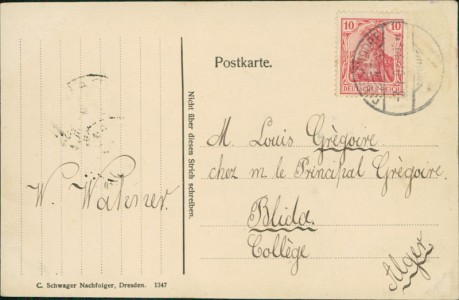 Postkarte.
10 10
DEUTSCHES REICH
Nicht über diesen Strich schreiben.
M. Louis Grègoire
chez m le Principal Grègoire.
Blida.
Collège
Alger
C. Schwager Nachfolger, Dresden. 1347